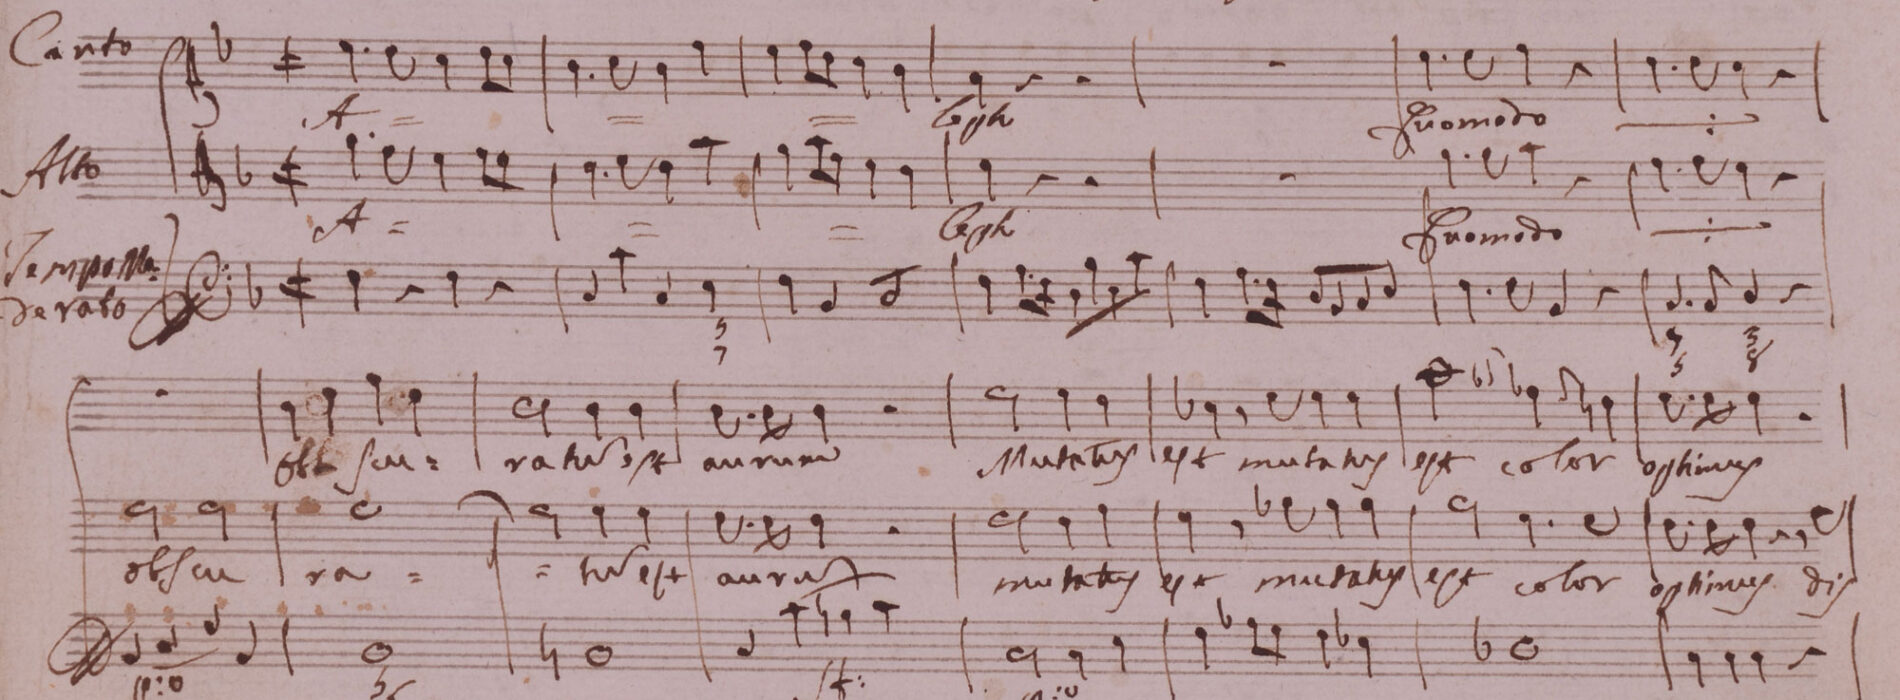 Canto
A = = = Leph Quomodo
Alto
A = = = Leph Quomodo
Tempo Mo:
derato
5 7 7 5 3 8
obb scu = ratus est aurum Mutatus est mutatus est color optimus
obscu ra = = tus est aurum mutatus est mutatus est color optimus dis
p:o 5 6 f: p:o